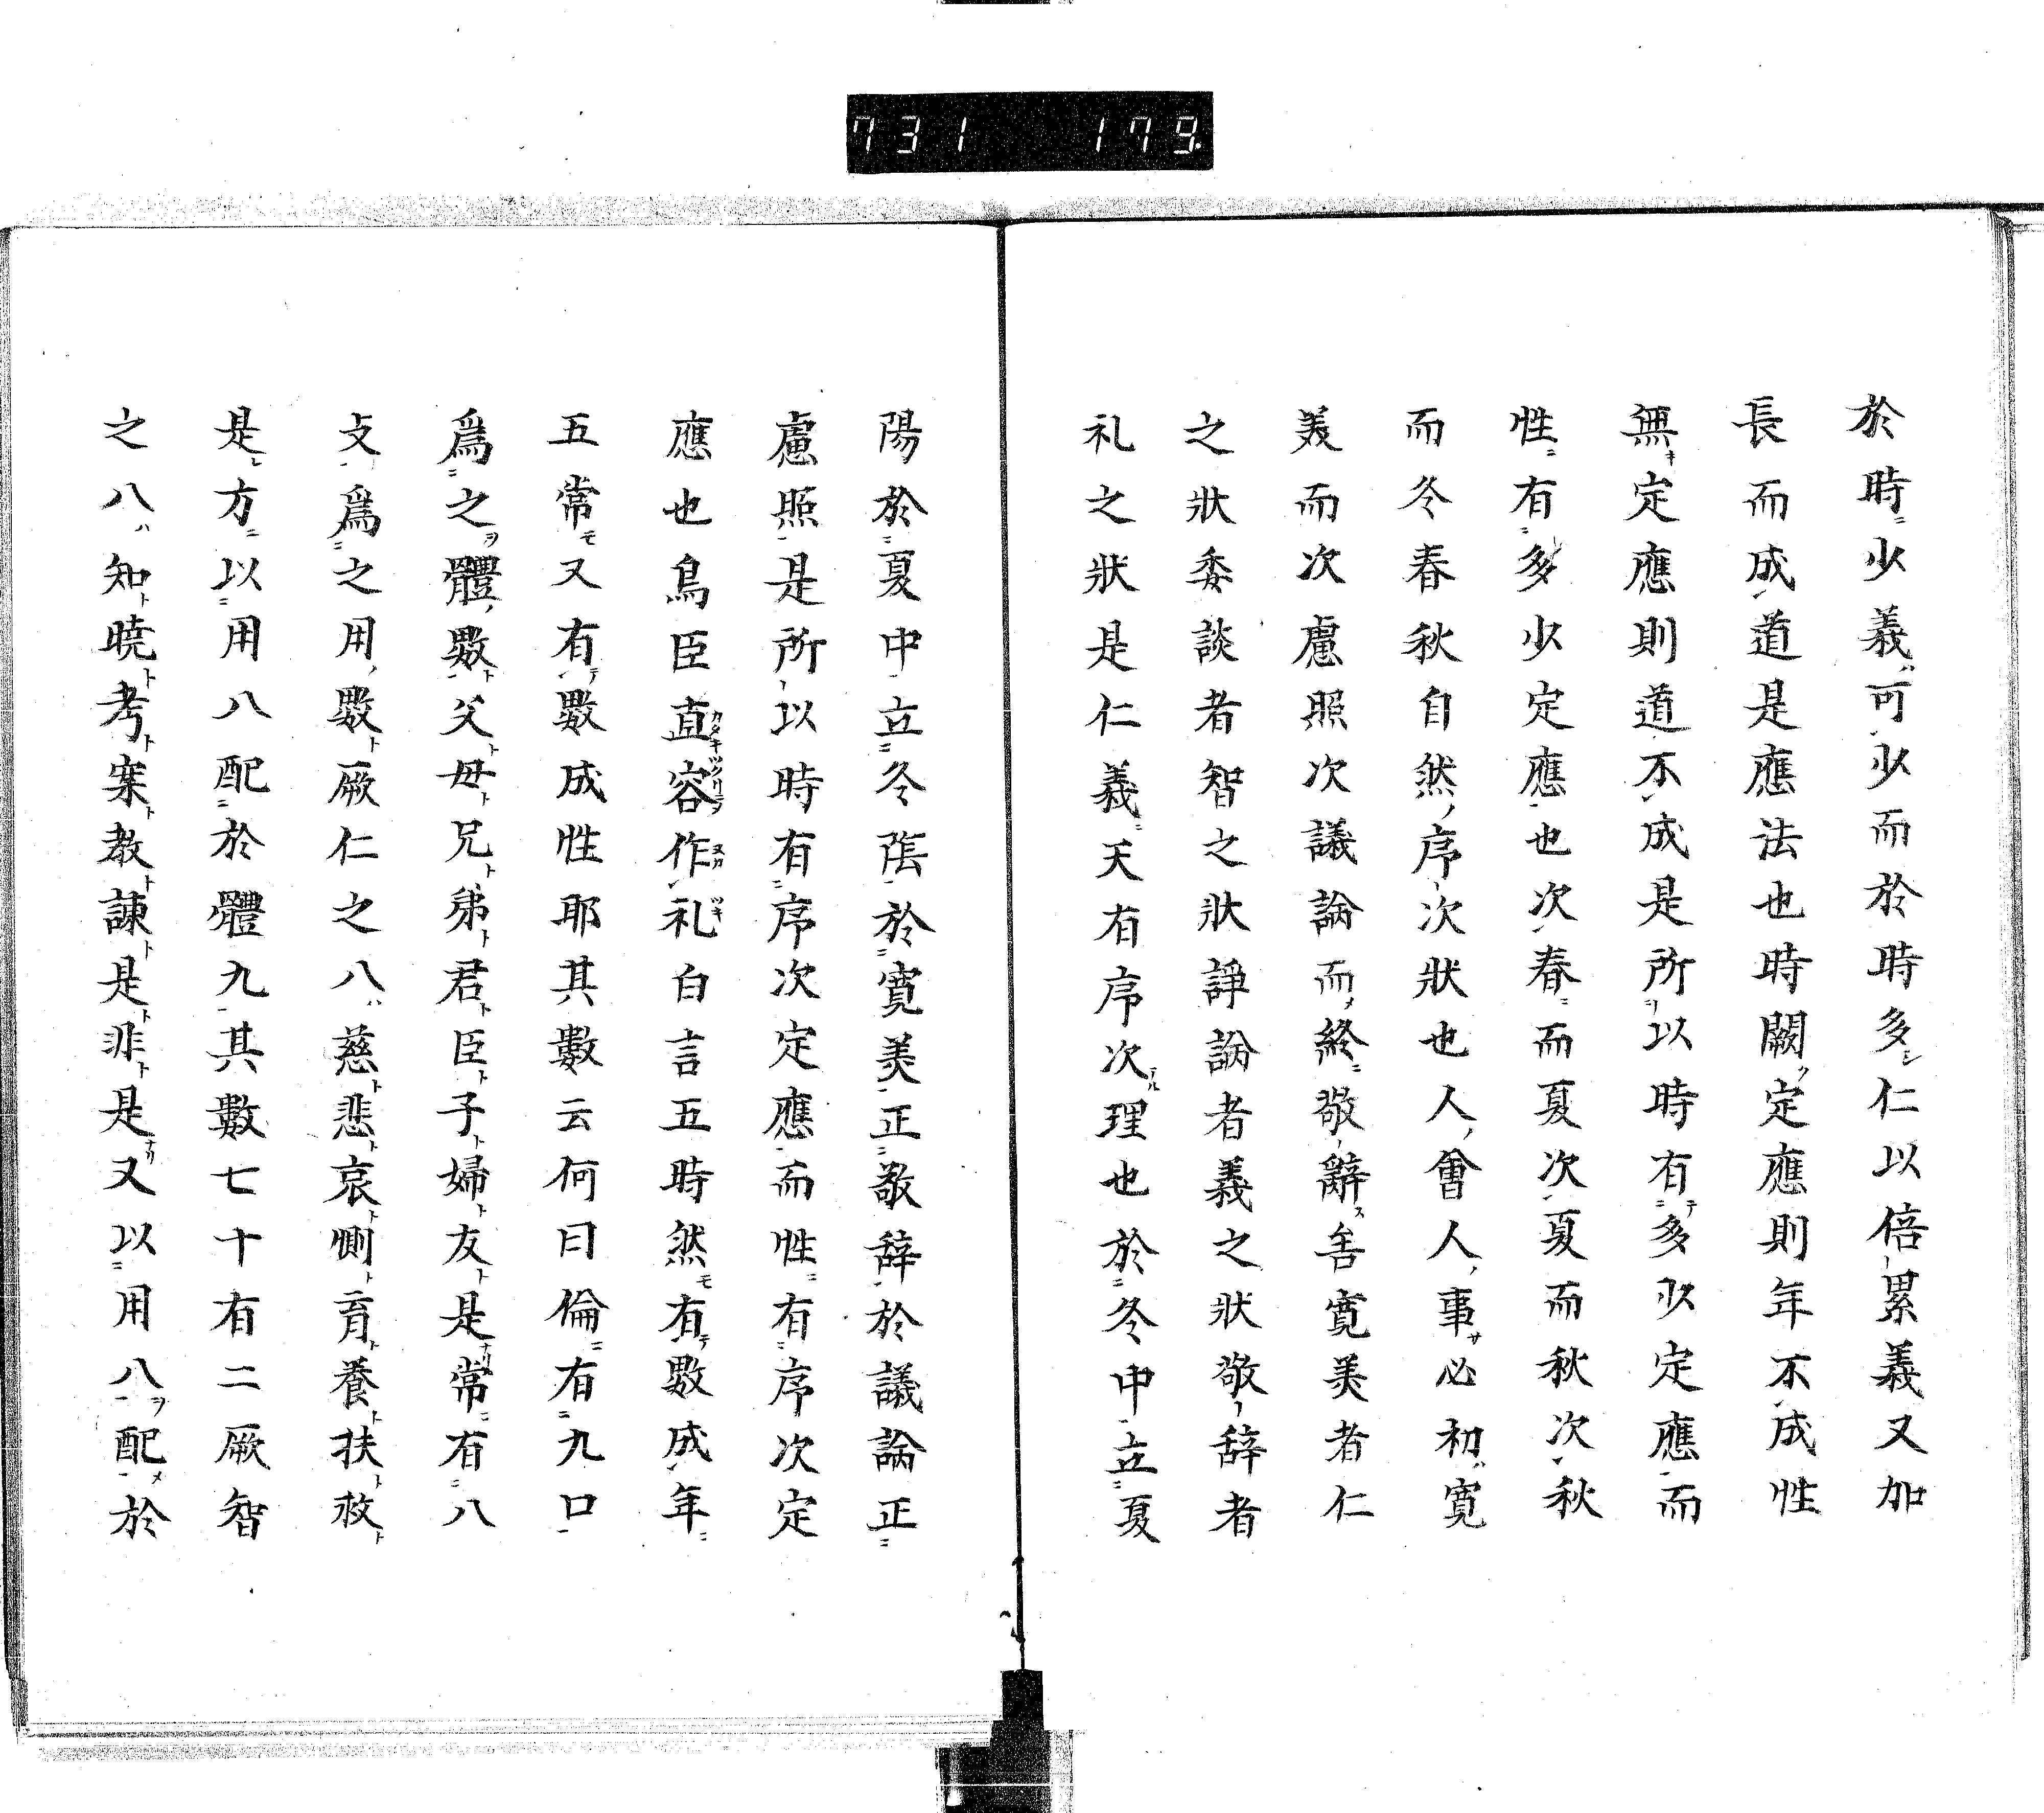 731 179
於時少義可少而於時多仁以倍累義又加
長而成道是應法也時闕定應則年不成性
無定應則道不成是所以時有多少定應而
性有多少定應也次春而夏次夏而秋次秋
而冬春秋自然序次狀也人會人事必初寛
美而次慮照次議論而終敬辭害寛美者仁
之狀委談者智之狀諍論者義之狀敬辞者
礼之狀是仁義天有序次理也於冬中立夏
陽於夏中立冬陰於寛美正敬辞於議論正
慮照是所以時有序次定應而性有序次定
應也鳥臣直容作礼白言五時然有數成年
五常又有數成性耶其數云何曰倫有九口
爲之體數父母兄弟君臣子婦友是常有八
攴爲之用數厥仁之八慈悲哀惻育養扶救
是方以用八配於體九其數七十有二厥智
之八知曉考案教諌是非是又以用八配於